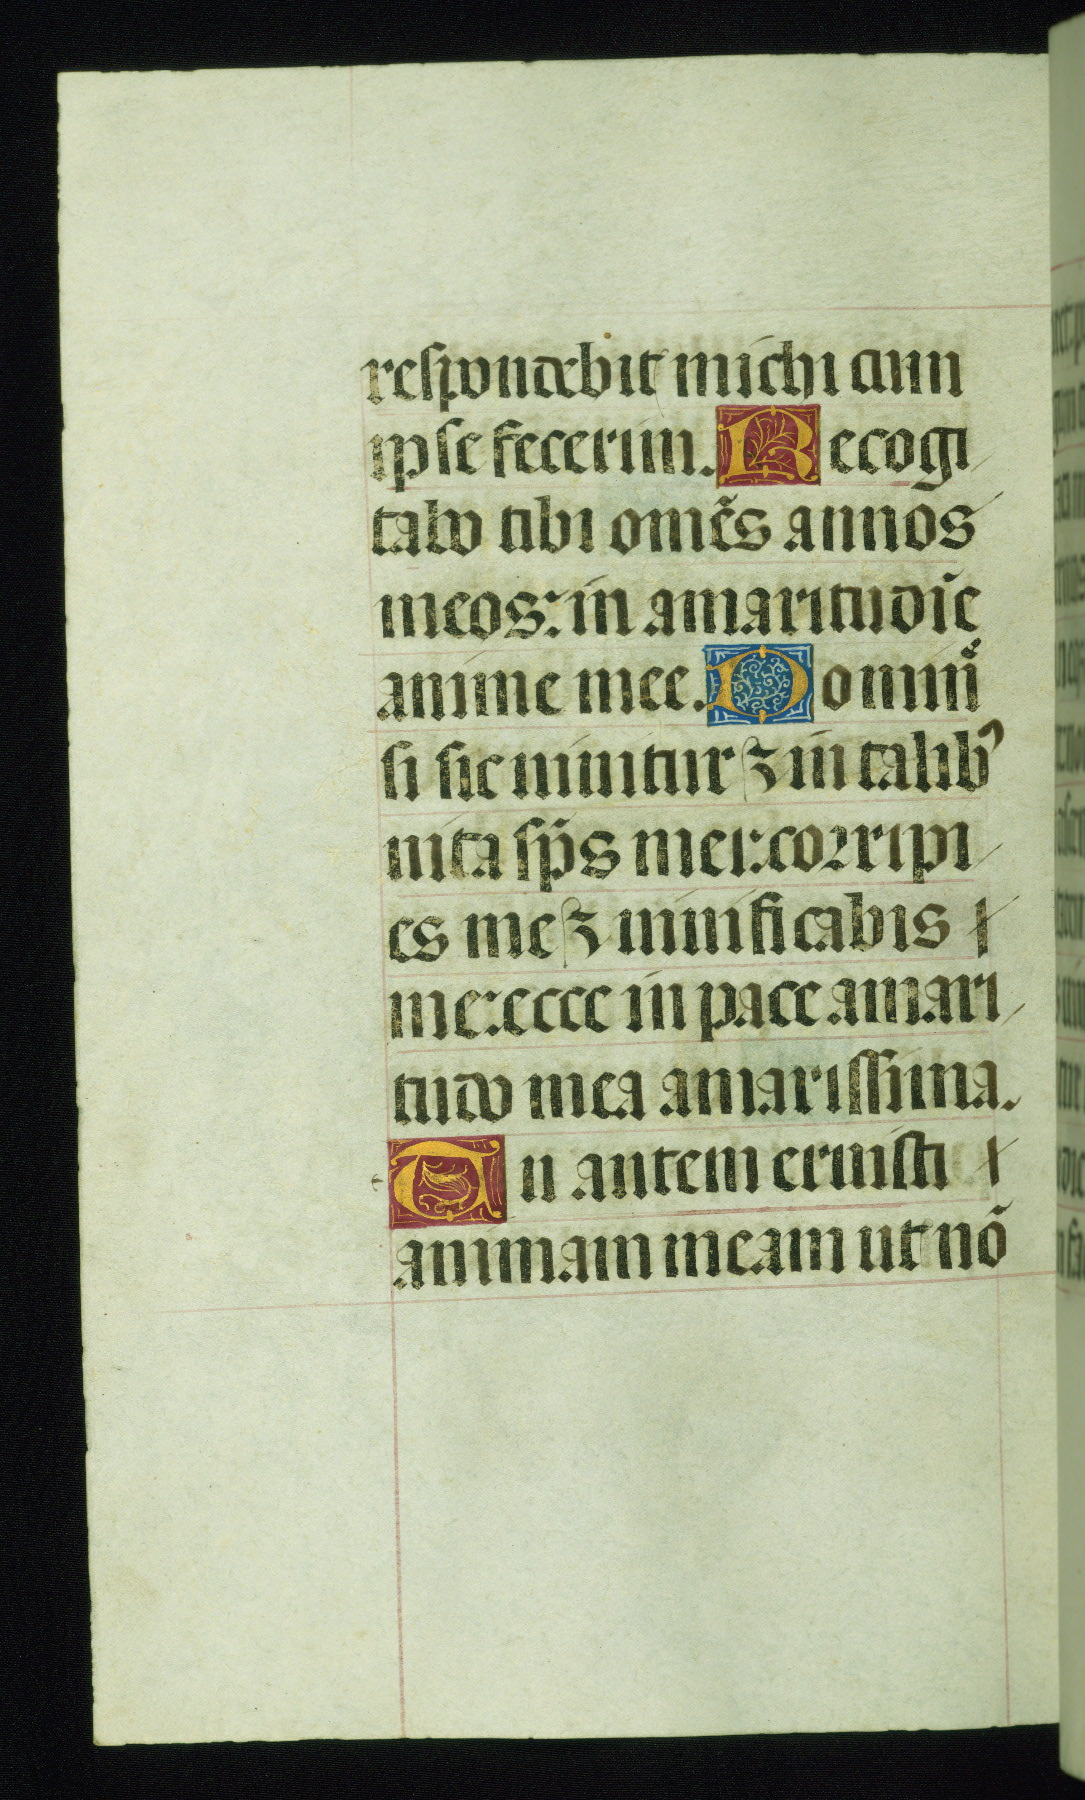 respondebit michi cum
ipse fecerim. Recogi
tabo tibi om̃es annos
meos: in amaritudīe
anime mee. Domin̄
si sic uiuitur ⁊ in talibꝰ
uita sp̄s mei: corripi
es me ⁊ uiuificabis
me: ecce in pace amari
tudo mea amarissima.
Tu autem eruisti
animam meam ut nō